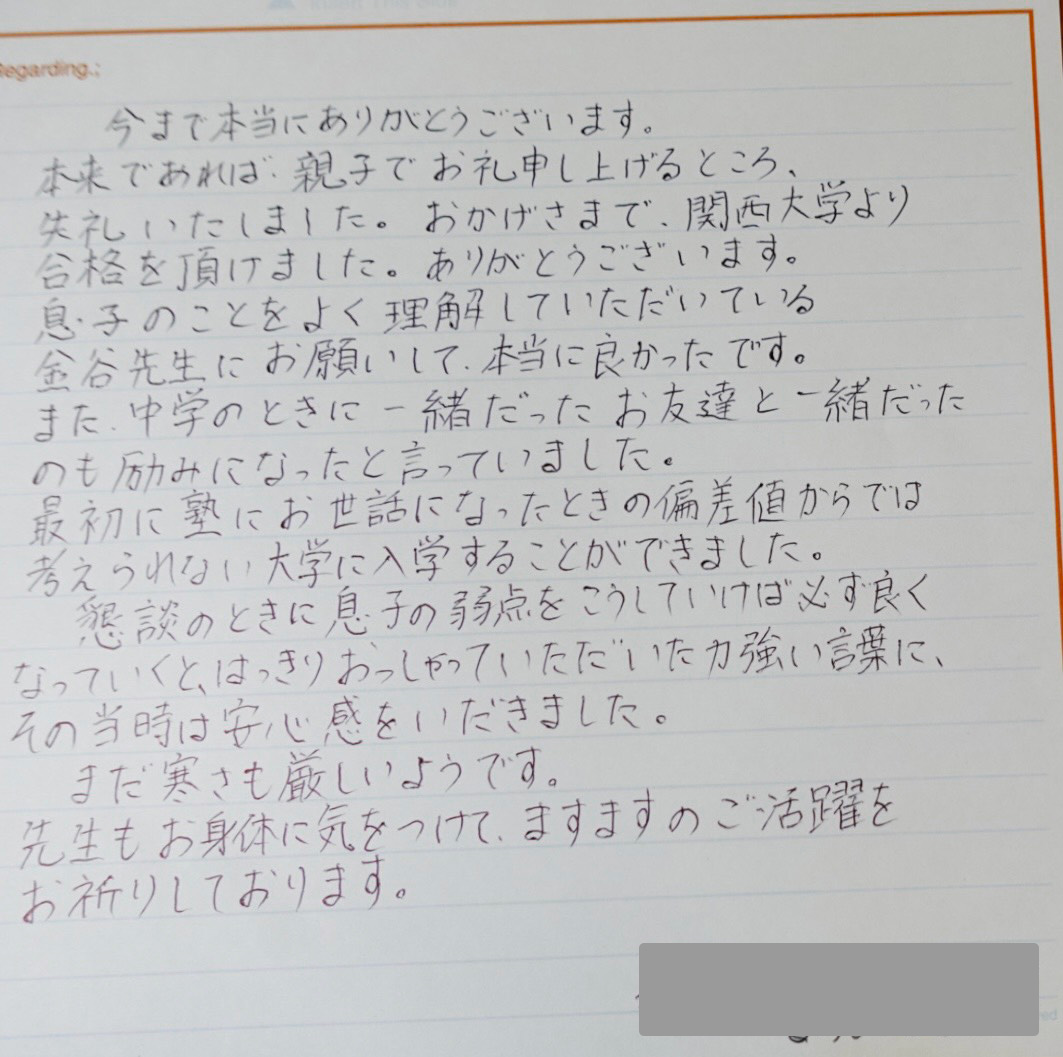 Regarding.;
今まで本当にありがとうございます。
本来であれば、親子でお礼申し上げるところ、
失礼いたしました。おかげさまで、関西大学より
合格を頂けました。ありがとうございます。
息子のことをよく理解していただいている
金谷先生にお願いして、本当に良かったです。
また、中学のときに一緒だったお友達と一緒だった
のも励みになったと言っていました。
最初に塾にお世話になったときの偏差値からでは
考えられない大学に入学することができました。
懇談のときに息子の弱点をこうしていけば必ず良く
なっていくと、はっきりおっしゃっていただいた力強い言葉に、
その当時は安心感をいだきました。
まだ寒さも厳しいようです。
先生もお身体に気をつけて、ますますのご活躍を
お祈りしております。